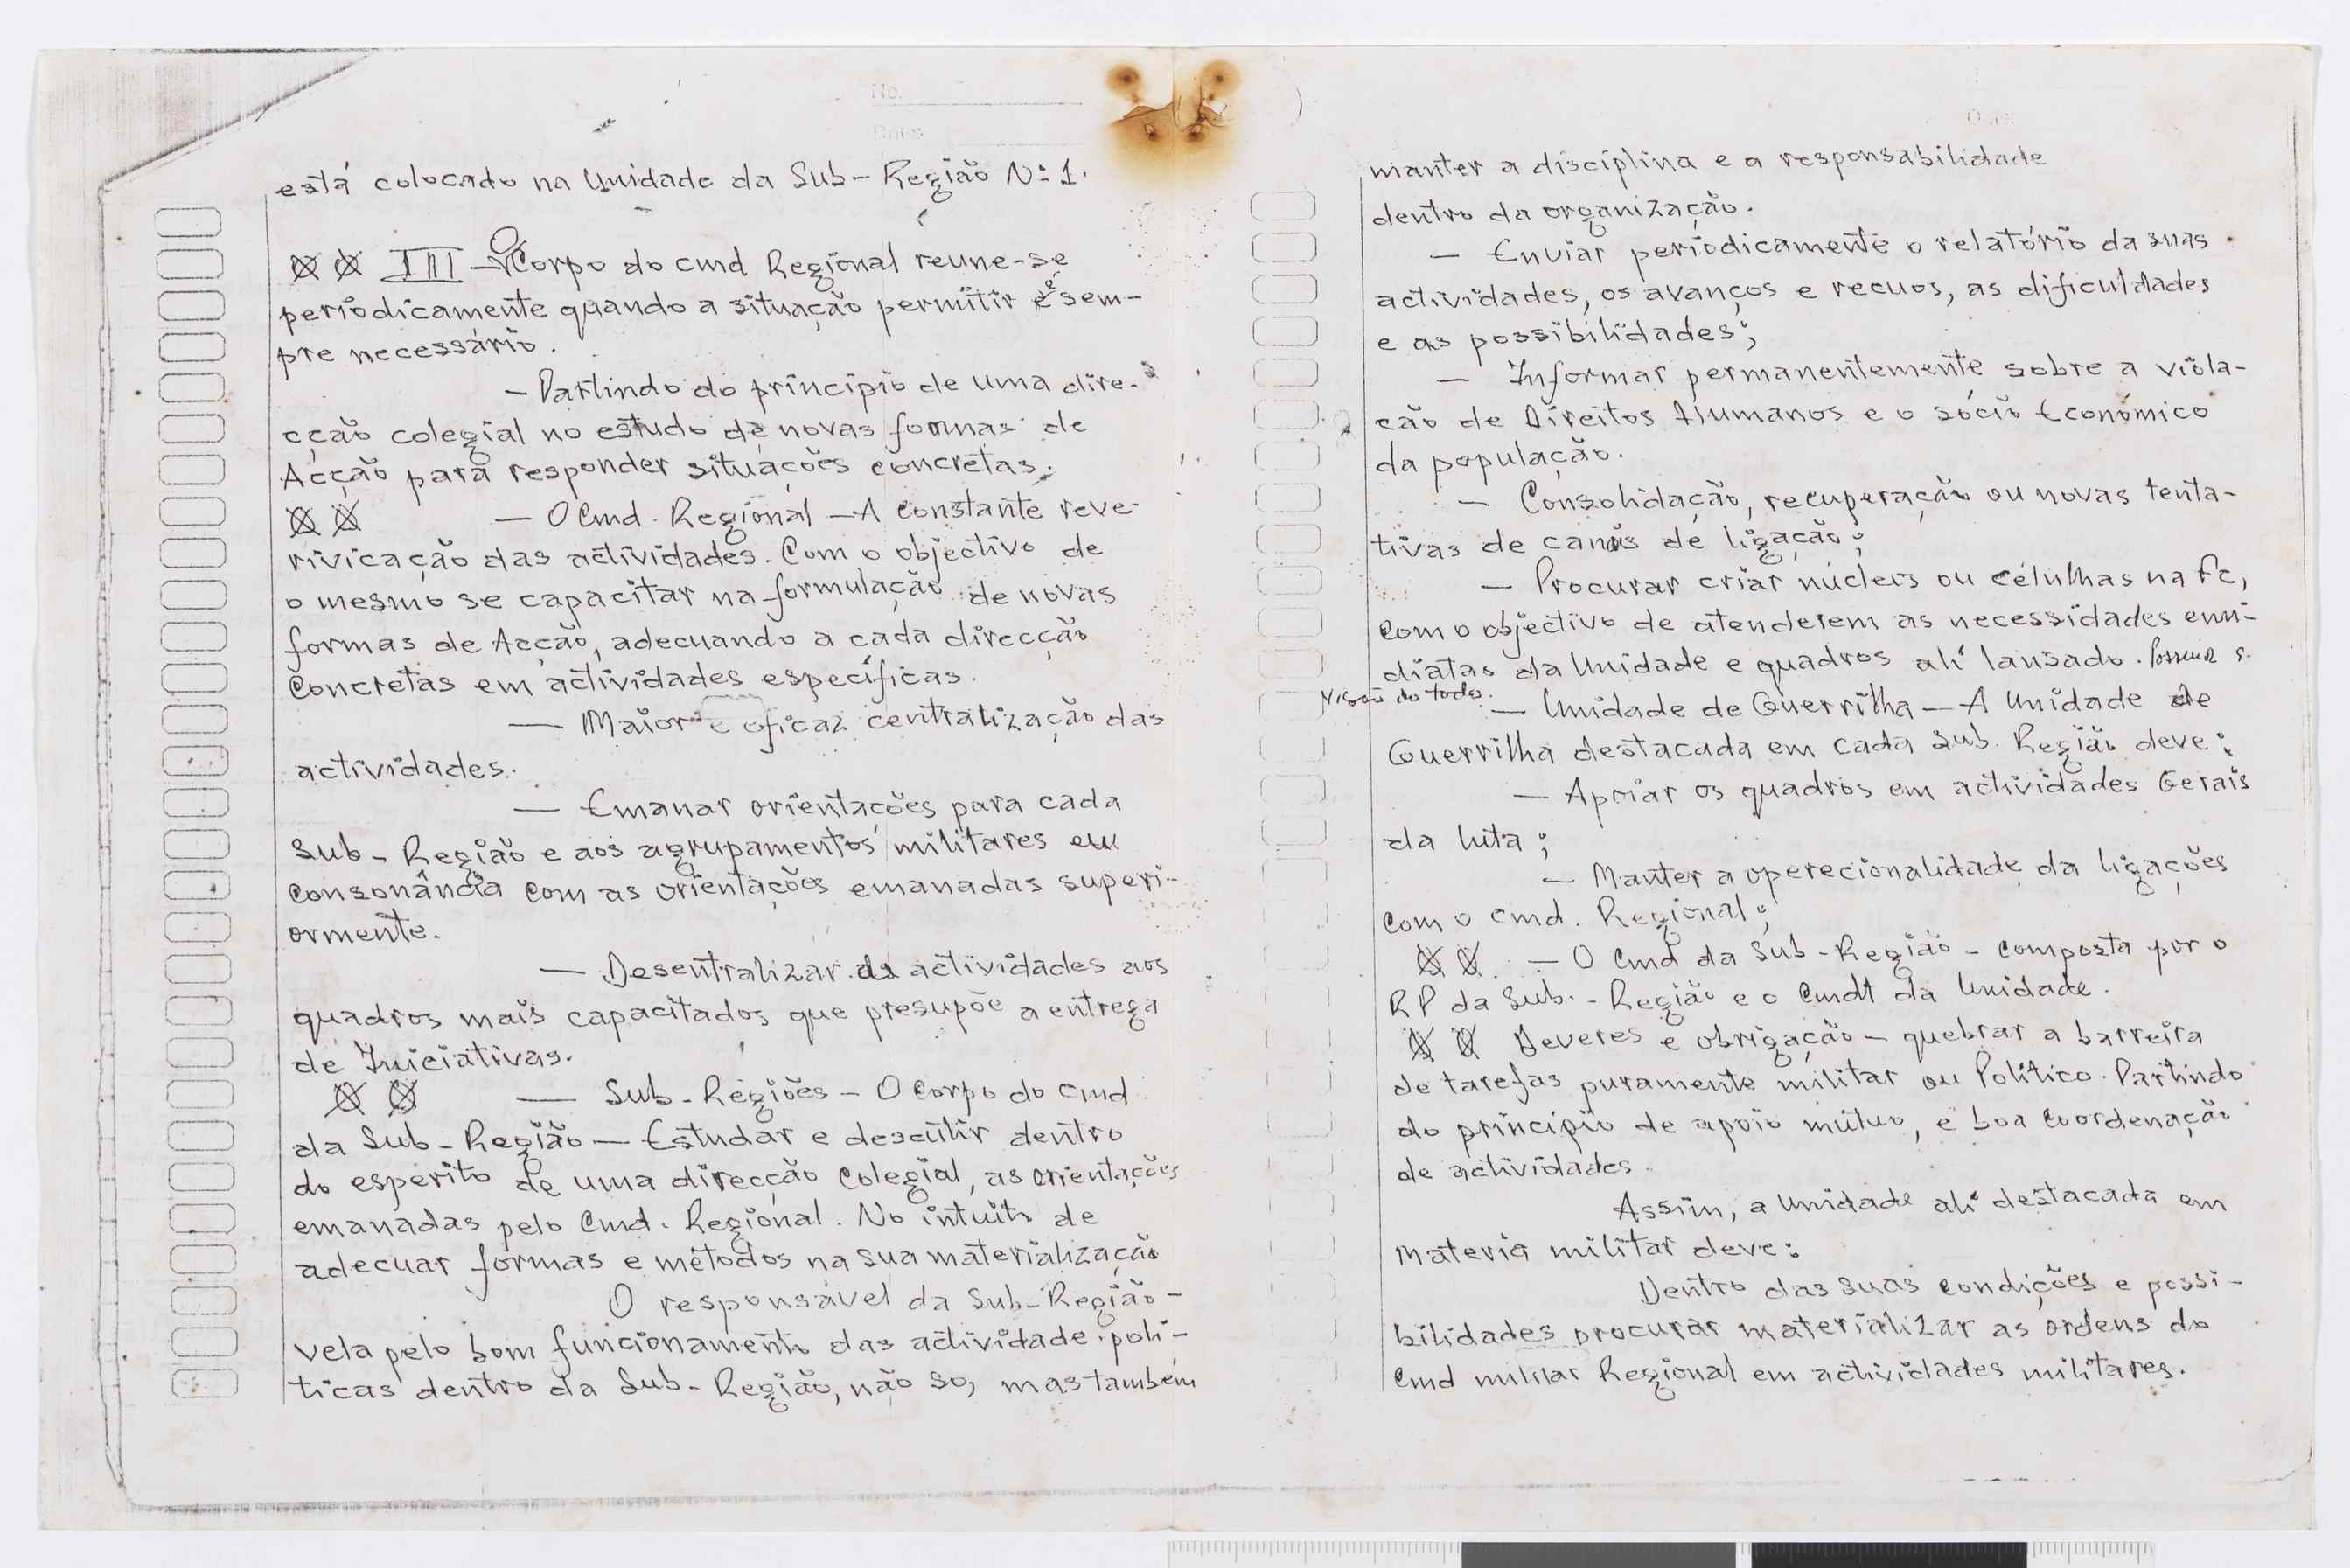 No.
Date:
está colocado na Unidade da Sub-Região Nº 1.
III - O Corpo do cmd Regional reune-se
periodicamente quando a situação permitir e sem-
pre necessário.
- Partindo do principio de uma dire-
cção colegial no estudo de novas formas de
Acção para responder situações concretas;
- O Cmd. Regional - A constante reve-
rivicação das actividades. Com o objectivo de
o mesmo se capacitar na formulação de novas
formas de Acção, adecuando a cada direcção
Concretas em actividades específicas.
- Maior e eficaz centralização das
actividades.
- Emanar orientações para cada
Sub-Região e aos agrupamentos militares em
consonância com as orientações emanadas superi-
ormente.
- Desentralizar as actividades aos
quadros mais capacitados que presupõe a entrega
de Iniciativas.
- Sub-Regiões - O Corpo do Cmd
da Sub-Região - Estudar e descutir dentro
do esperito de uma direcção Colegial, as orientações
emanadas pelo Cmd. Regional. No intuito de
adecuar formas e métodos na sua materialização
O responsável da Sub-Região -
vela pelo bom funcionamento das actividade poli-
ticas dentro da Sub-Região, não so, mas também
Date:
manter a disciplina e a responsabilidade
dentro da organização.
- Enviar periodicamente o relatório da suas
actividades, os avanços e recuos, as dificuldades
e as possibilidades;
- Informar permanentemente sobre a viola-
ção de Direitos Humanos e o sócio Económico
da população.
- Consolidação, recuperação ou novas tenta-
tivas de canais de ligação;
- Procurar criar núcleos ou célulhas na Fc,
com o objectivo de atenderem as necessidades emi-
diatas da Unidade e quadros ali lansado.
do todo.
- Unidade de Guerrilha - A Unidade de
Guerrilha destacada em cada Sub. Região deve:
- Apoiar os quadros em actividades Gerais
da luta;
- Manter a operecionalidade da ligações
com o cmd. Regional;
- O Cmd da Sub-Região - composta por o
RP da Sub.-Região e o Cmdt da Unidade.
Deveres e obrigação - quebrar a barreira
de tarefas puramente militar ou Político. Partindo
do principio de apoio mútuo, e boa Coordenação
de actividades.
Assim, a Unidade ali destacada em
Materia militar deve:
Dentro das suas condições e possi-
bilidades procurar materializar as ordens do
Cmd militar Regional em actividades militares.